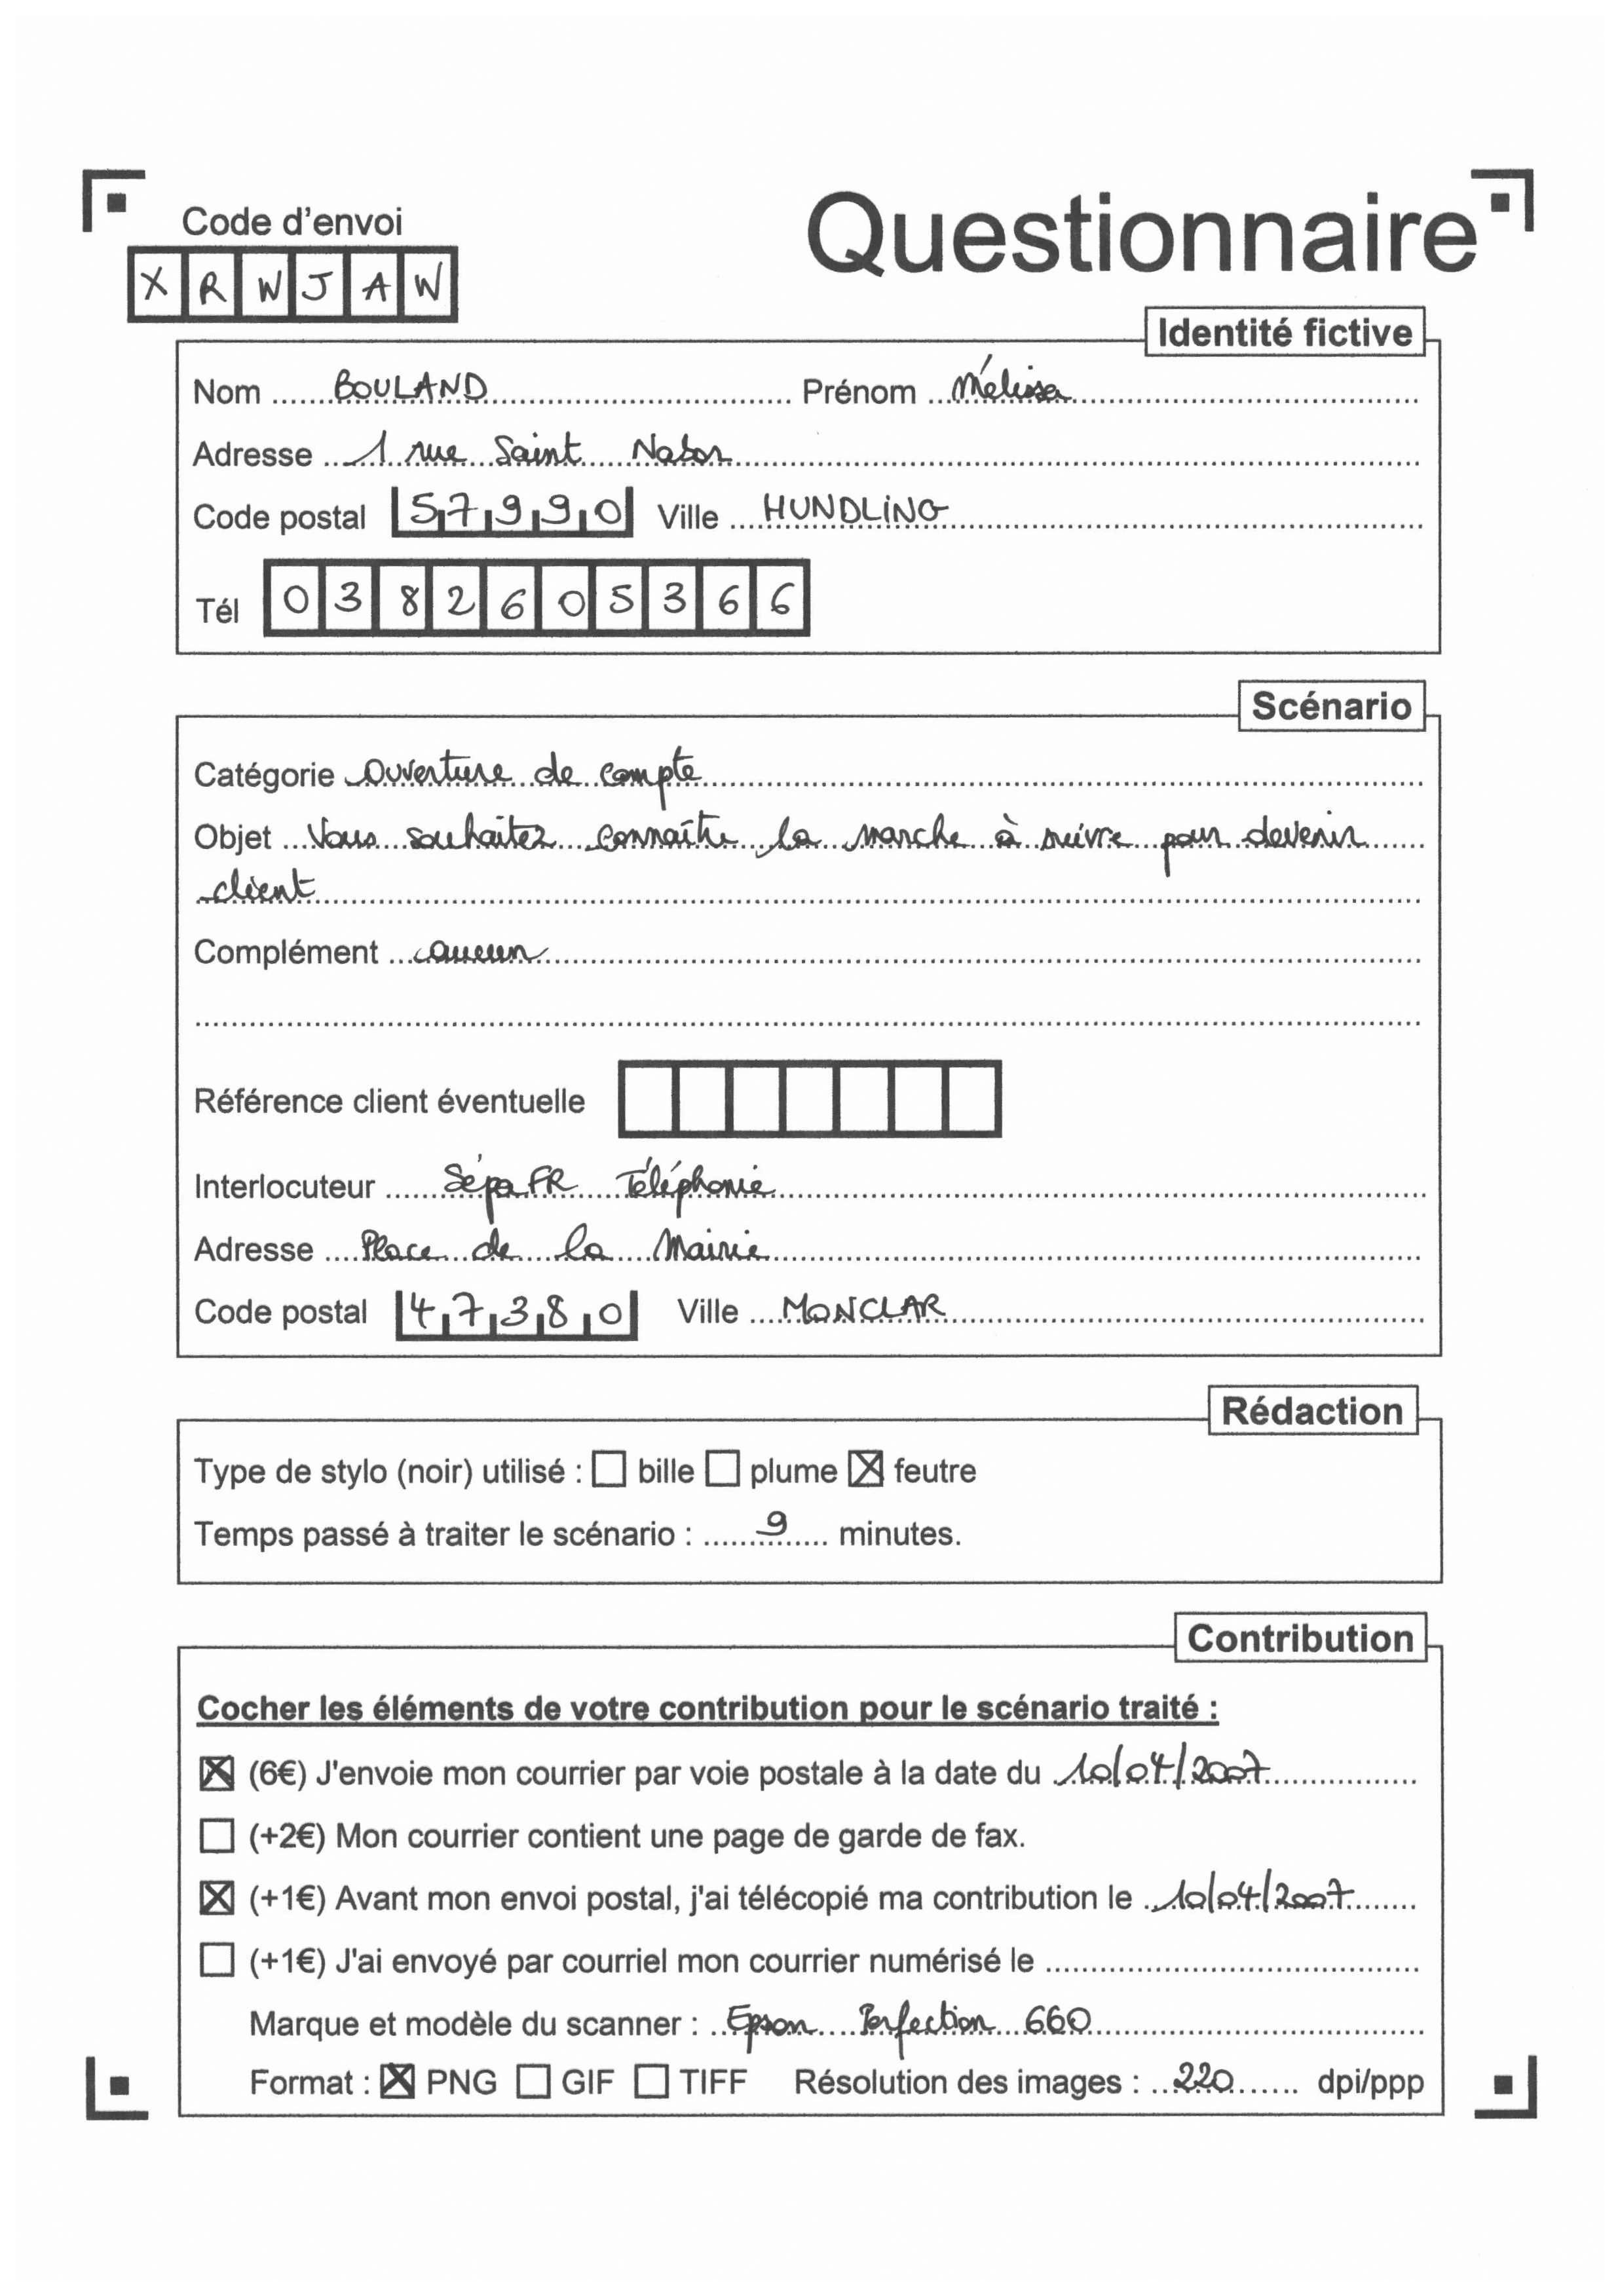 Code d'envoi
Questionnaire
X R W J A W
Identité fictive
Nom BOULAND Prénom Mélissa
Adresse 1 rue Saint Nabor
Code postal 57990 Ville HUNDLING
Tél 0382605366
Scénario
Catégorie Ouverture de compte
Objet Vous souhaitez connaître la marche à suivre pour devenir
client
Complément aucun
Référence client éventuelle
Interlocuteur SépaFR Téléphonie
Adresse Place de la Mairie
Code postal 47380 Ville MONCLAR
Rédaction
Type de stylo (noir) utilisé : ☐ bille ☐ plume ☒ feutre
Temps passé à traiter le scénario : 9 minutes.
Contribution
Cocher les éléments de votre contribution pour le scénario traité :
☒ (6€) J'envoie mon courrier par voie postale à la date du 10/04/2007
☐ (+2€) Mon courrier contient une page de garde de fax.
☒ (+1€) Avant mon envoi postal, j'ai télécopié ma contribution le 10/04/2007
☐ (+1€) J'ai envoyé par courriel mon courrier numérisé le
Marque et modèle du scanner : Epson Perfection 660
Format : ☒ PNG ☐ GIF ☐ TIFF Résolution des images : 220 dpi/ppp